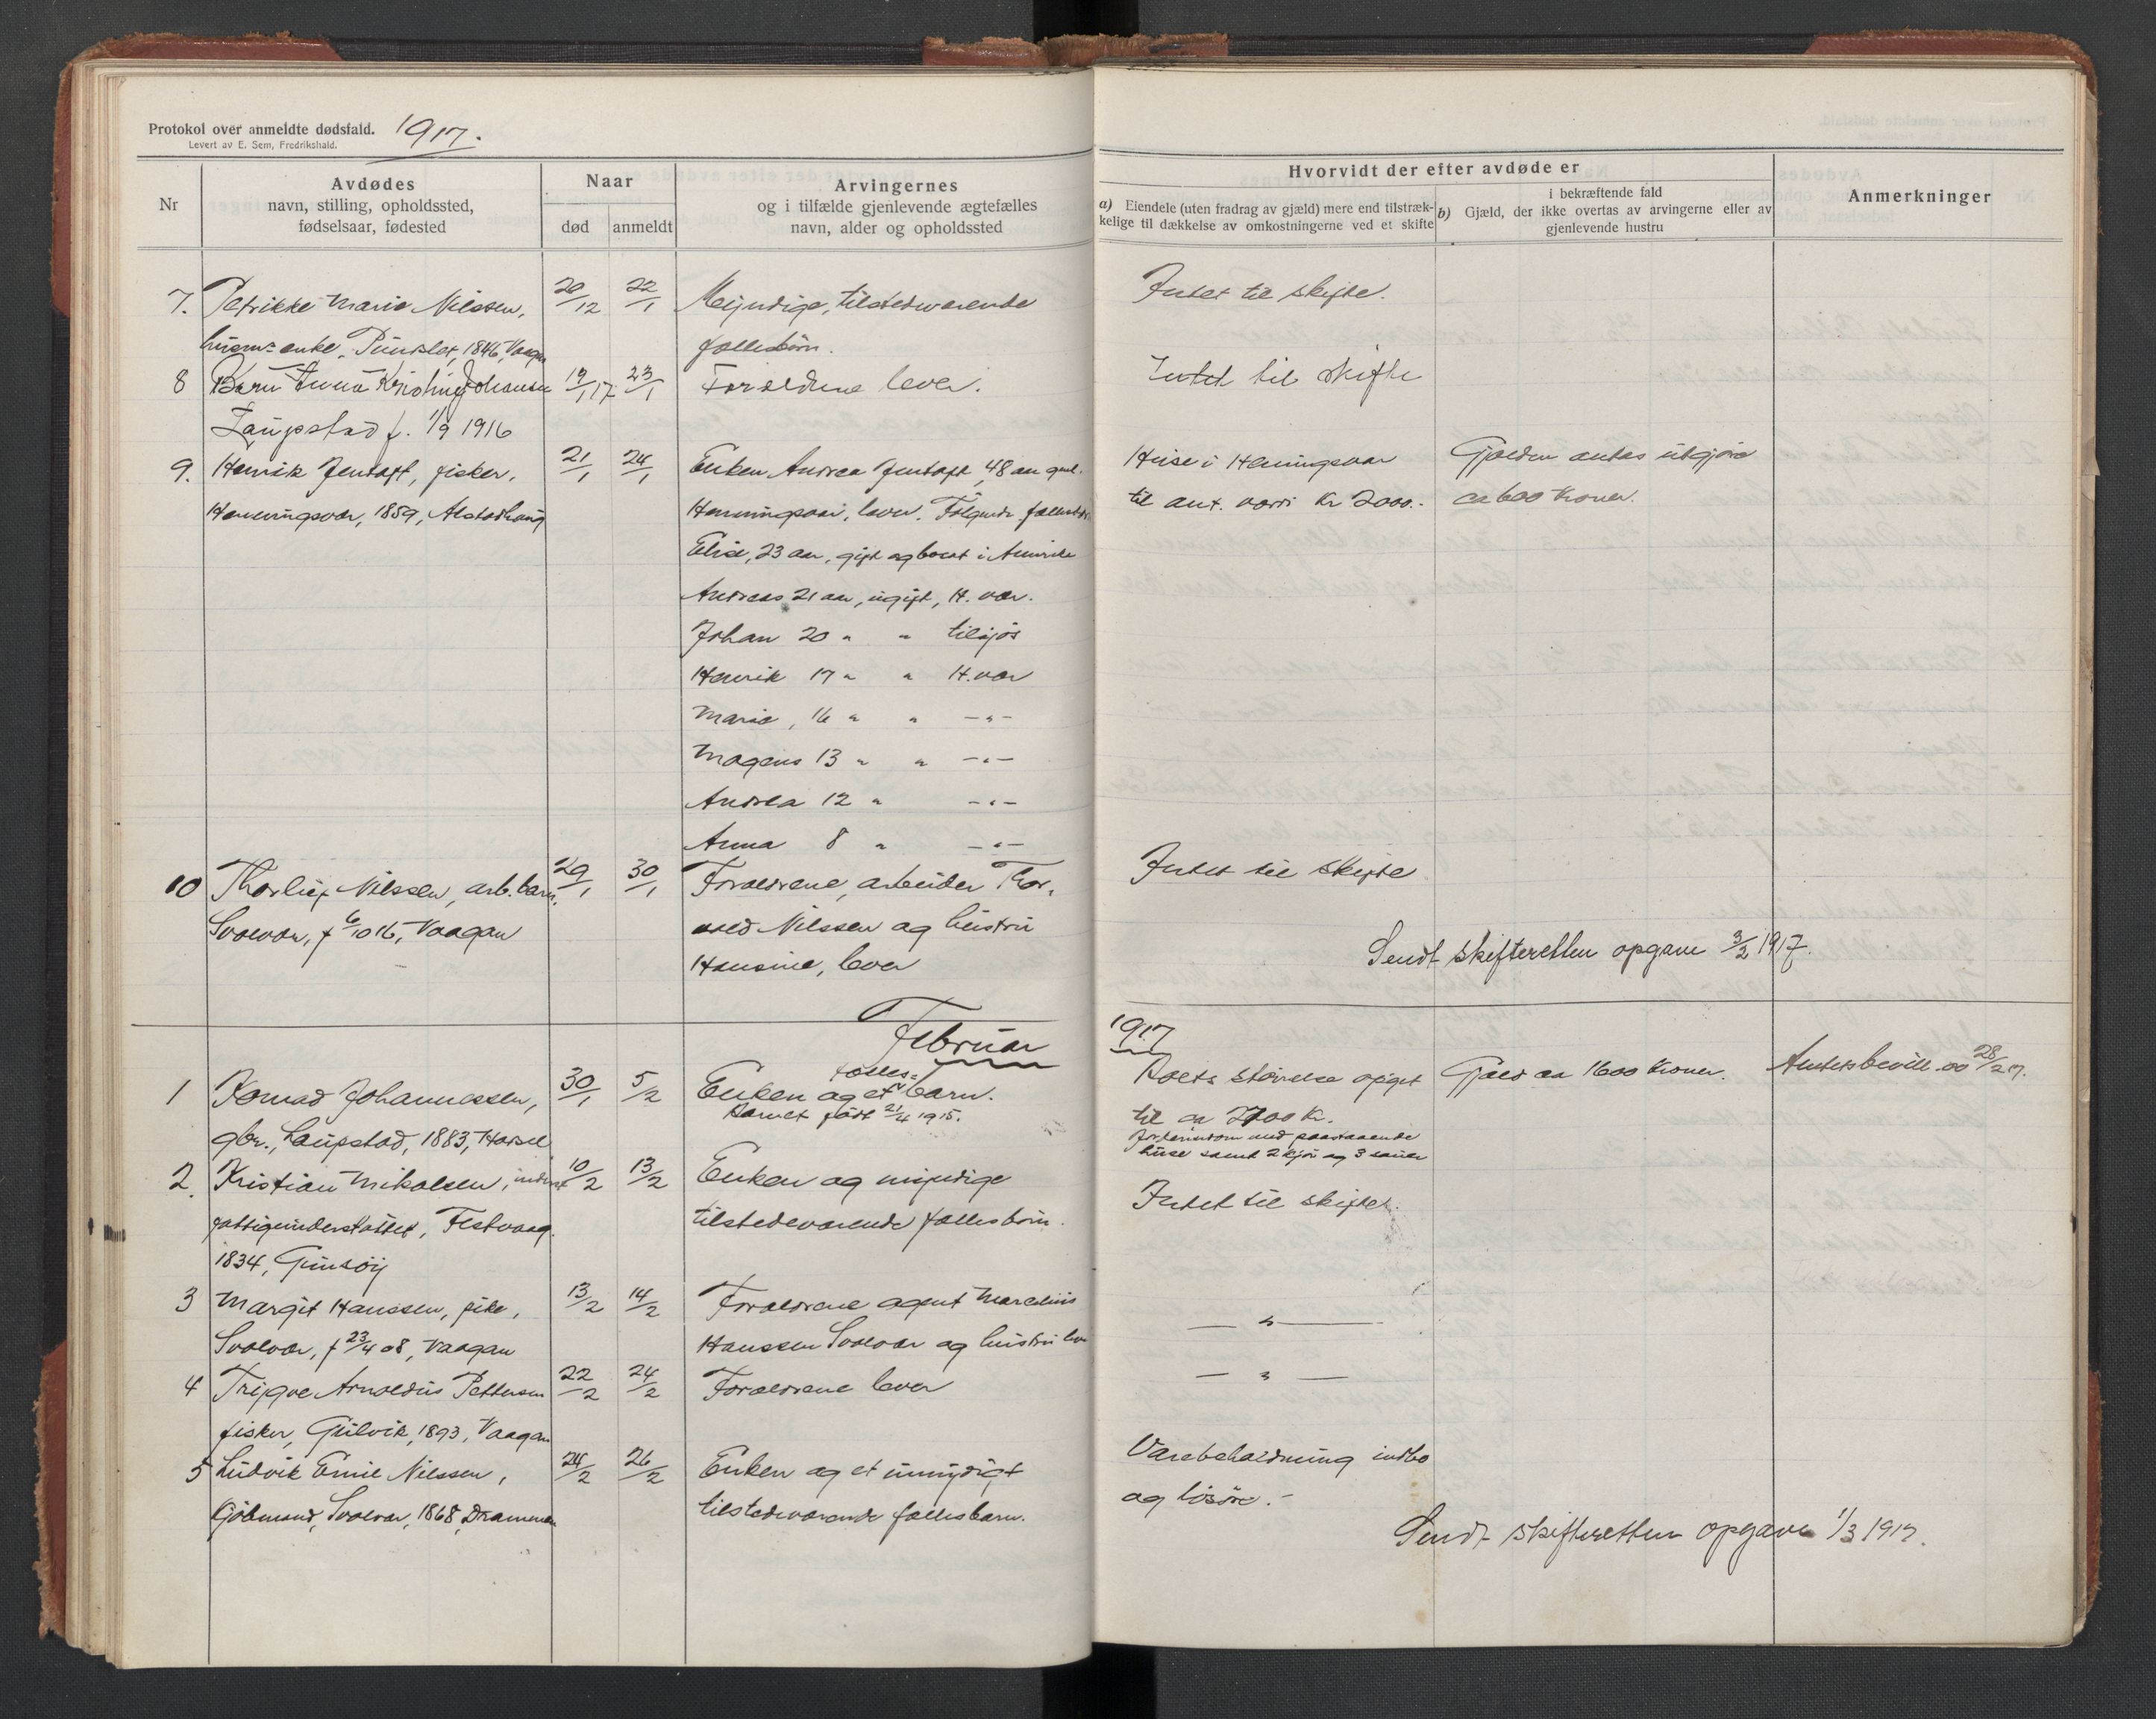 Protokol over anmeldte dødsfald. 1917.
Levert av E. Sem, Fredrikshald.
Nr
Avdødes
navn, stilling, opholdssted,
fødselsaar, fødested
Naar
død
anmeldt
Arvingernes
og i tilfælde gjenlevende ægtefælles
navn, alder og opholdssted
Hvorvidt der efter avdøde er
a) Eiendele (uten fradrag av gjæld) mere end tilstræk-
kelige til dækkelse av omkostningerne ved et skifte
i bekræftende fald
b) Gjæld, der ikke overtas av arvingerne eller av
gjenlevende hustru
Anmerkninger
7. Petrikke Marie Nilssen, 20/12 22/1 Myndige, tilstedværende Intet til skifte.
husm. enke, 1846, Vaagan fællesbørn.
8 Barn Anna Kristine Johansen 19/1 17 23/1 Forældrene lever. Intet til skifte
Laupstad f. 1/9 1916
9. Henrik Jentoft, fisker, 21/1 24/1 Enken Andrea Jentoft, 48 aar gml. Huse i Henningsvær Gjælden antas utgjøre
Henningsvær, 1859, Alstadhaug Henningsvær, lever. Følgende fællesbørn til ant. værdi Kr 2000.- ca 600 Kroner.
Elise, 23 aar, gift og bosat i Amerika
Andreas 21 aar, ugift, H. vær.
Johan 20 " " tilsjøs
Henrik 17 " " H. vær
Marie, 16 " " -"-
Magens 13 " " -"-
Andrea 12 " -"-
Anna 8 " -"-
10 Thorleif Nilssen, arb. barn, 29/1 30/1 Forældrene, arbeider Thor- Intet til skifte
Svolvær, f 6/10 16, Vaagan vald Nilssen og hustru
Hansine, lever
Sendt skifteretten opgave 3/2 1917.
Februar 1917
1 Konrad Johannessen, 30/1 5/2 Enken og et fælles- barn. Boets størrelse opgit Gjæld ca 1600 Kroner. Amtsbevill. 28/2 17.
Barnet født 21/4 1915. til ca 2700 Kr.
gbr., Laupstad, 1883, Hassel
Jordeiendom med paastaaende
huse samt 2 kjør og 3 sauer
2. Kristian Mikalsen, 10/2 13/2 Enken og myndige Intet til skifte.
fattigunderstøttet, Festvaag. tilstedeværende fællesbørn.
1834, Gimsøy
3 Margit Hanssen, pike, 13/2 14/2 Forældrene agent Marelius — " —
Svolvær, f 23/4 08, Vaagan Hanssen Svolvær og hustru lever
4 Trygve Arnoldus Pettersen 22/2 24/2 Forældrene lever — " —
fisker, Gulvik, 1893, Vaagan
5 Ludvik Emil Nilssen, 24/2 26/2 Enken og et umyndigt Varebeholdning indbo
Kjøbmand, Svolvær, 1868, Drammen tilstedeværende fællesbarn. og løsøre.-
Sendt skifteretten opgave 1/3 1917.